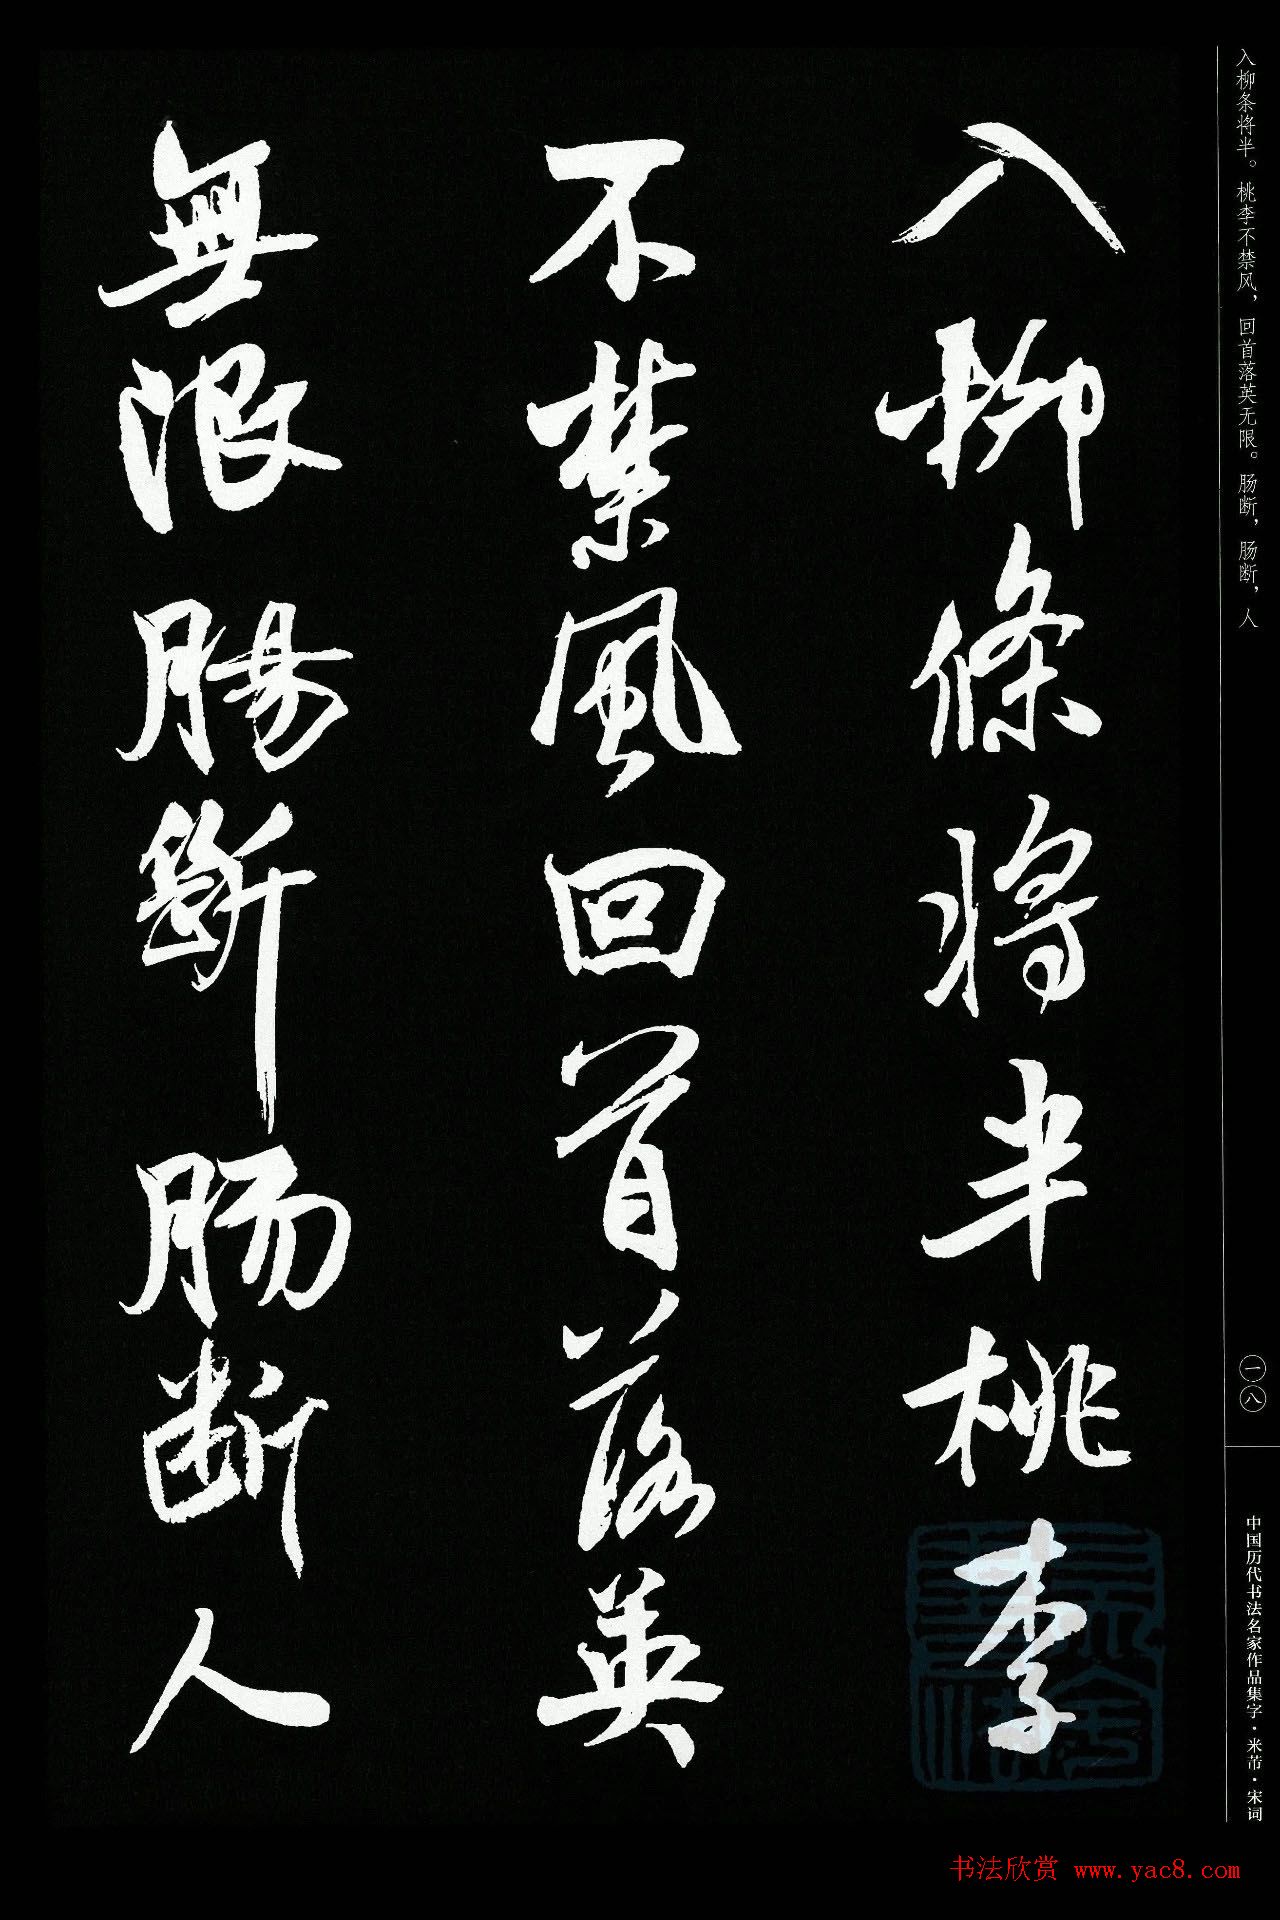 入柳條將半桃李
不禁風回首落英
無限腸斷肠断人
入柳条将半。桃李不禁风，回首落英无限。肠断，肠断，人
一八
中国历代书法名家作品集字·米芾·宋词
书法欣赏 www.yac8.com